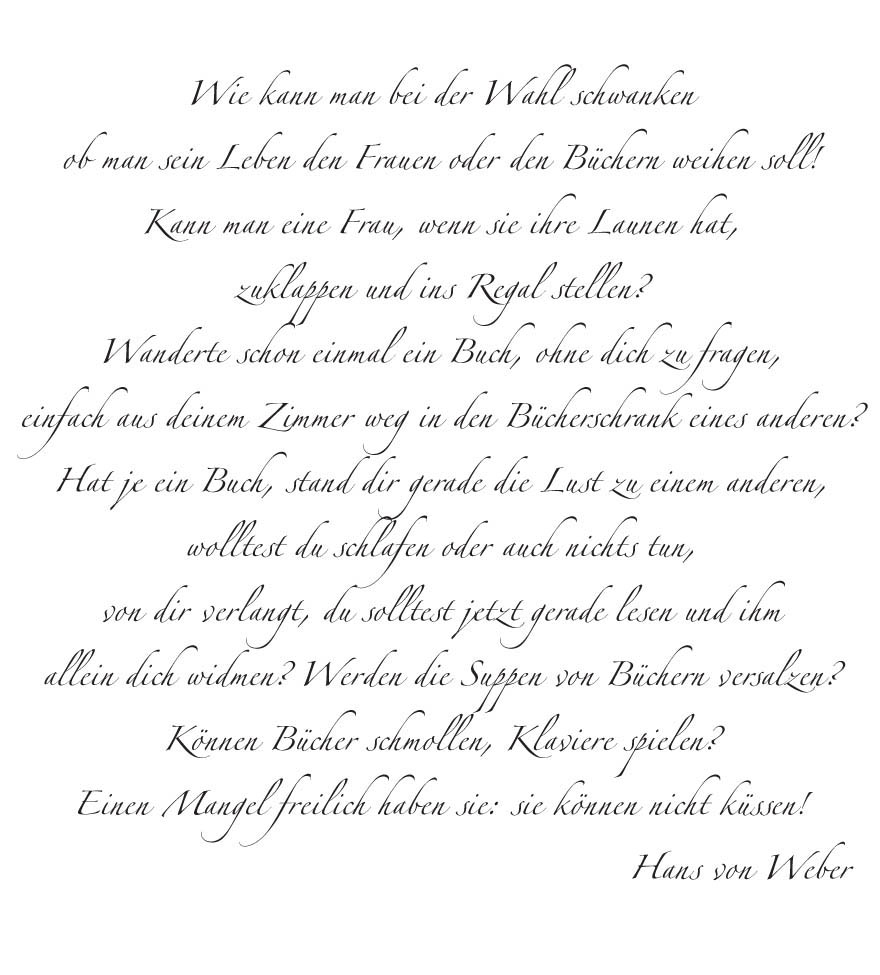 Wie kann man bei der Wahl schwanken
ob man sein Leben den Frauen oder den Büchern weihen soll!
Kann man eine Frau, wenn sie ihre Launen hat,
zuklappen und ins Regal stellen?
Wanderte schon einmal ein Buch, ohne dich zu fragen,
einfach aus deinem Zimmer weg in den Bücherschrank eines anderen?
Hat je ein Buch, stand dir gerade die Lust zu einem anderen,
wolltest du schlafen oder auch nichts tun,
von dir verlangt, du solltest jetzt gerade lesen und ihm
allein dich widmen? Werden die Suppen von Büchern versalzen?
Können Bücher schmollen, Klaviere spielen?
Einen Mangel freilich haben sie: sie können nicht küssen!
Hans von Weber